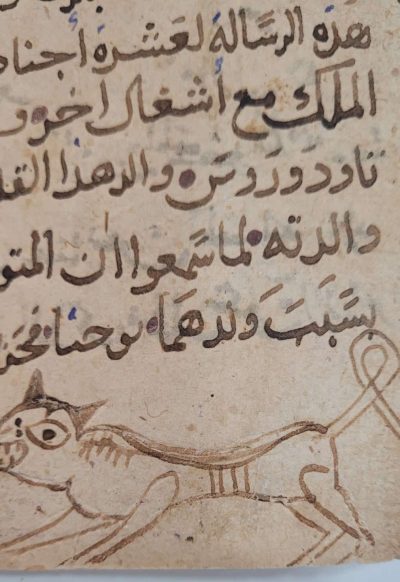 هذه الرسالة لعشرة أجناد
الملك مع أشغال اخر و
تاودوروس والد هذا القد
والدته لما سمعوا ان المتو
بسبب ولدهما يوحنا فحز